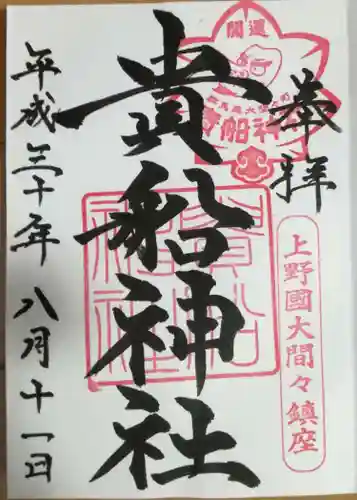 奉拝
開運
群馬県大間々町
貴船神社
上野國大間々鎮座
貴船神社
貴船神社
平成三十年八月十一日